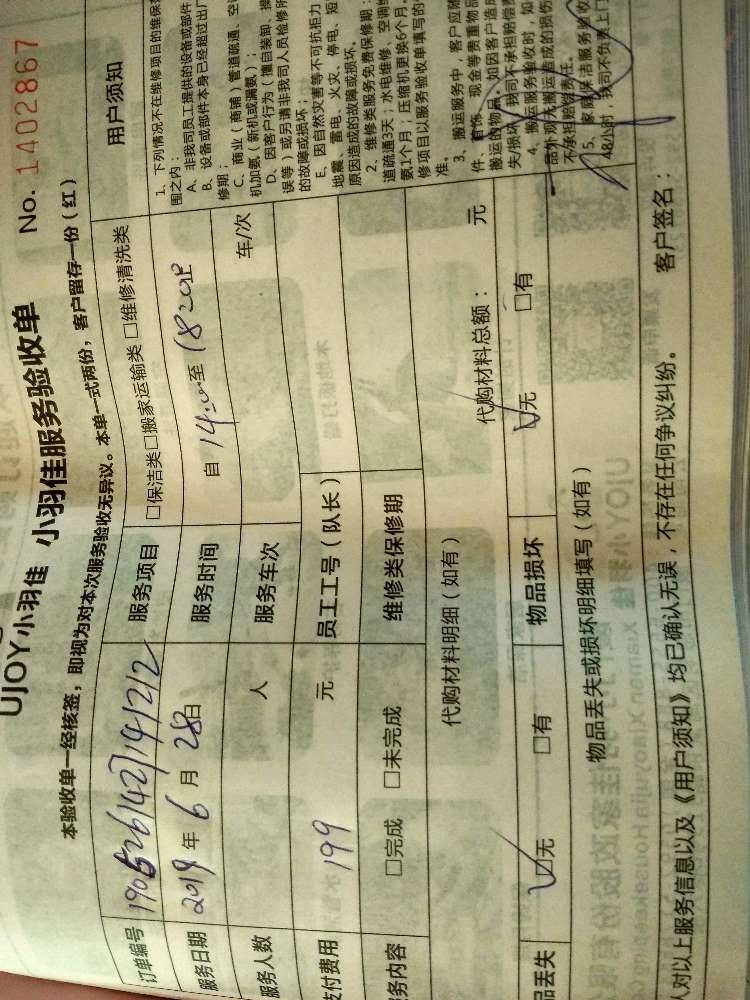 UJOY小羽佳 小羽佳服务验收单 No. 1402867
本验收单一经核签，即视为对本次服务验收无异议。本单一式两份，客户留存一份（红）
订单编号 1905261427191212 服务项目 □保洁类□搬家运输类 □维修清洗类
服务日期 2019 年 6 月 28日 服务时间 自 14:00至 18:20止
服务人数 人 服务车次 车/次
支付费用 199 元 员工工号（队长）
务内容 □完成 □未完成 维修类保修期
代购材料明细（如有） 代购材料总额： 元
品丢失 ☑无 □有 物品损坏 ☑无 □有
物品丢失或损坏明细填写（如有）
用户须知
1、下列情况不在维修项目的维保
围之内：
A、非我司员工提供的设备或部件
B、设备或部件本身已经超过出厂
修期；
C、商业（商铺）管道疏通、空
机加氨（新机或漏氨）；
D、因客户行为（擅自装卸、操
误等）或另请非我司人员检修所
的故障或损坏；
E、因自然灾害等不可抗柜力
地震、雷电、火灾、停电、短
原因造成的故障或损坏。
2、维修类服务免费保修期：
道疏通3天；水电维修、空调
氨1个月；压缩机更换6个月，
修项目以服务验收单填写的
准。
3、搬运服务中，客户应随
件、首饰、现金等贵重物品
搬运的物品。如因客户造成
失/损坏，我司不承担赔偿责
4、搬运服务验收时，如
品外观无搬运造成的损伤
不承担赔偿责任。
5、家庭保洁服务验收
48小时，我司不负责上门
人对以上服务信息以及《用户须知》均已确认无误，不存在任何争议纠纷。 客户签名：